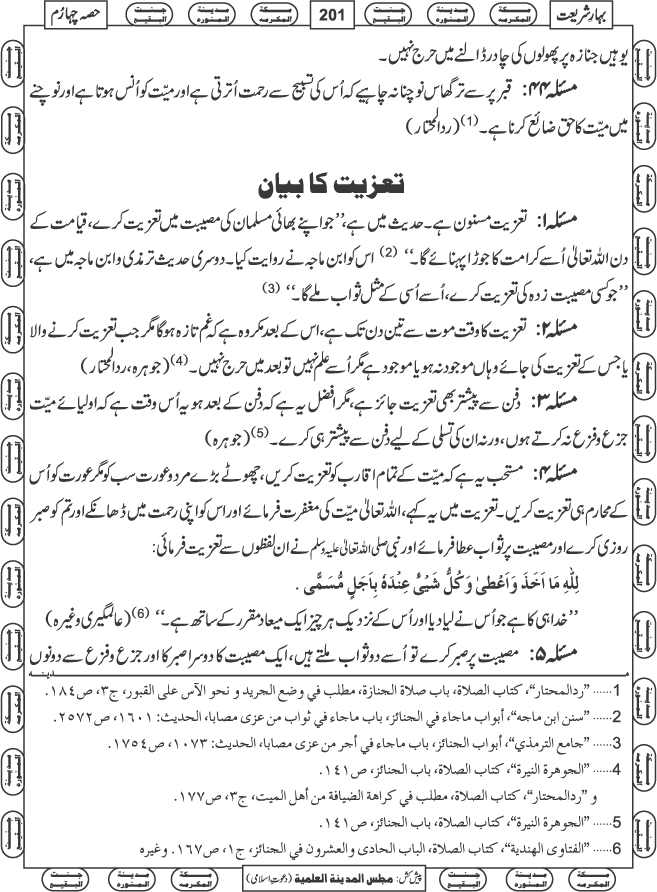 بہارِ شریعت
201
حصہ چہارُم
یوہیں جنازہ پر پھولوں کی چادر ڈالنے میں حرج نہیں۔
مسئلہ ۴۴: قبر پر سے تر گھاس نوچنا نہ چاہیے کہ اُس کی تسبیح سے رحمت اُترتی ہے اور میّت کو اُنس ہوتا ہے اور نوچنے
میں میّت کا حق ضائع کرنا ہے۔ (1) (ردالمحتار)
تعزیت کا بیان
مسئلہ ۱: تعزیت مسنون ہے۔ حدیث میں ہے، ’’جو اپنے بھائی مسلمان کی مصیبت میں تعزیت کرے، قیامت کے
دن اللہ تعالیٰ اُسے کرامت کا جوڑا پہنائے گا۔‘‘ (2) اس کو ابن ماجہ نے روایت کیا۔ دوسری حدیث ترمذی و ابن ماجہ میں ہے،
’’جو کسی مصیبت زدہ کی تعزیت کرے، اُسے اُسی کے مثل ثواب ملے گا۔‘‘ (3)
مسئلہ ۲: تعزیت کا وقت موت سے تین دن تک ہے، اس کے بعد مکروہ ہے کہ غم تازہ ہوگا مگر جب تعزیت کرنے والا
یا جس کے تعزیت کی جائے وہاں موجود نہ ہو یا موجود ہے مگر اُسے علم نہیں تو بعد میں حرج نہیں۔ (4) (جوہرہ، ردالمحتار)
مسئلہ ۳: دفن سے پیشتر بھی تعزیت جائز ہے، مگر افضل یہ ہے کہ دفن کے بعد ہو یہ اُس وقت ہے کہ اولیائے میّت
جزع و فزع نہ کرتے ہوں، ورنہ ان کی تسلی کے لیے دفن سے پیشتر ہی کرے۔ (5) (جوہرہ)
مسئلہ ۴: مستحب یہ ہے کہ میّت کے تمام اقارب کو تعزیت کریں، چھوٹے بڑے مرد و عورت سب کو مگر عورت کو اُس
کے محارم ہی تعزیت کریں۔ تعزیت میں یہ کہے، اللہ تعالیٰ میّت کی مغفرت فرمائے اور اس کو اپنی رحمت میں ڈھانکے اور تم کو صبر
روزی کرے اور مصیبت پر ثواب عطا فرمائے اور نبی صلی اللہ تعالیٰ علیہ وسلم نے ان لفظوں سے تعزیت فرمائی:
لِلّٰہِ مَا اَخَذَ وَاَعْطٰی وَکُلُّ شَیْئٌ عِنْدَہٗ بِاَجَلٍ مُّسَمًّی .
’’خدا ہی کا ہے جو اُس نے لیا دیا اور اُس کے نزدیک ہر چیز ایک میعاد مقرر کے ساتھ ہے۔‘‘ (6) (عالمگیری وغیرہ)
مسئلہ ۵: مصیبت پر صبر کرے تو اُسے دو ثواب ملتے ہیں، ایک مصیبت کا دوسرا صبر کا اور جزع و فزع سے دونوں
1...... ”ردالمحتار“، کتاب الصلاۃ، باب صلاۃ الجنازۃ، مطلب في وضع الجرید و نحو الآس علی القبور، ج۳، ص۱۸۴.
2...... ”سنن ابن ماجہ“، أبواب ماجاء في الجنائز، باب ماجاء في ثواب من عزی مصابا، الحدیث: ۱۶۰۱، ص۲۵۷۲.
3...... ”جامع الترمذي“، أبواب الجنائز، باب ماجاء في أجر من عزی مصابا، الحدیث: ۱۰۷۳، ص۱۷۵۴.
4...... ”الجوھرۃ النیرۃ“، کتاب الصلاۃ، باب الجنائز، ص۱۴۱.
و ”ردالمحتار“، کتاب الصلاۃ، مطلب في کراھۃ الضیافۃ من أھل المیت، ج۳، ص۱۷۷.
5...... ”الجوھرۃ النیرۃ“، کتاب الصلاۃ، باب الجنائز، ص۱۴۱.
6...... ”الفتاوی الھندیۃ“، کتاب الصلاۃ، الباب الحادی والعشرون في الجنائز، ج۱، ص۱۶۷. وغیرہ
پیش کش: مجلس المدینۃ العلمیۃ (دعوتِ اسلامی)